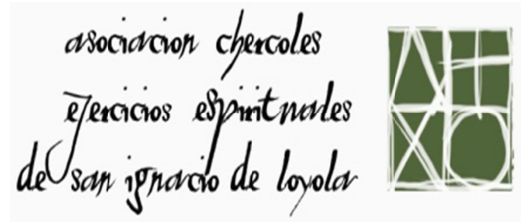 asociacion chercoles
ejercicios espirituales
de san ignacio de loyola